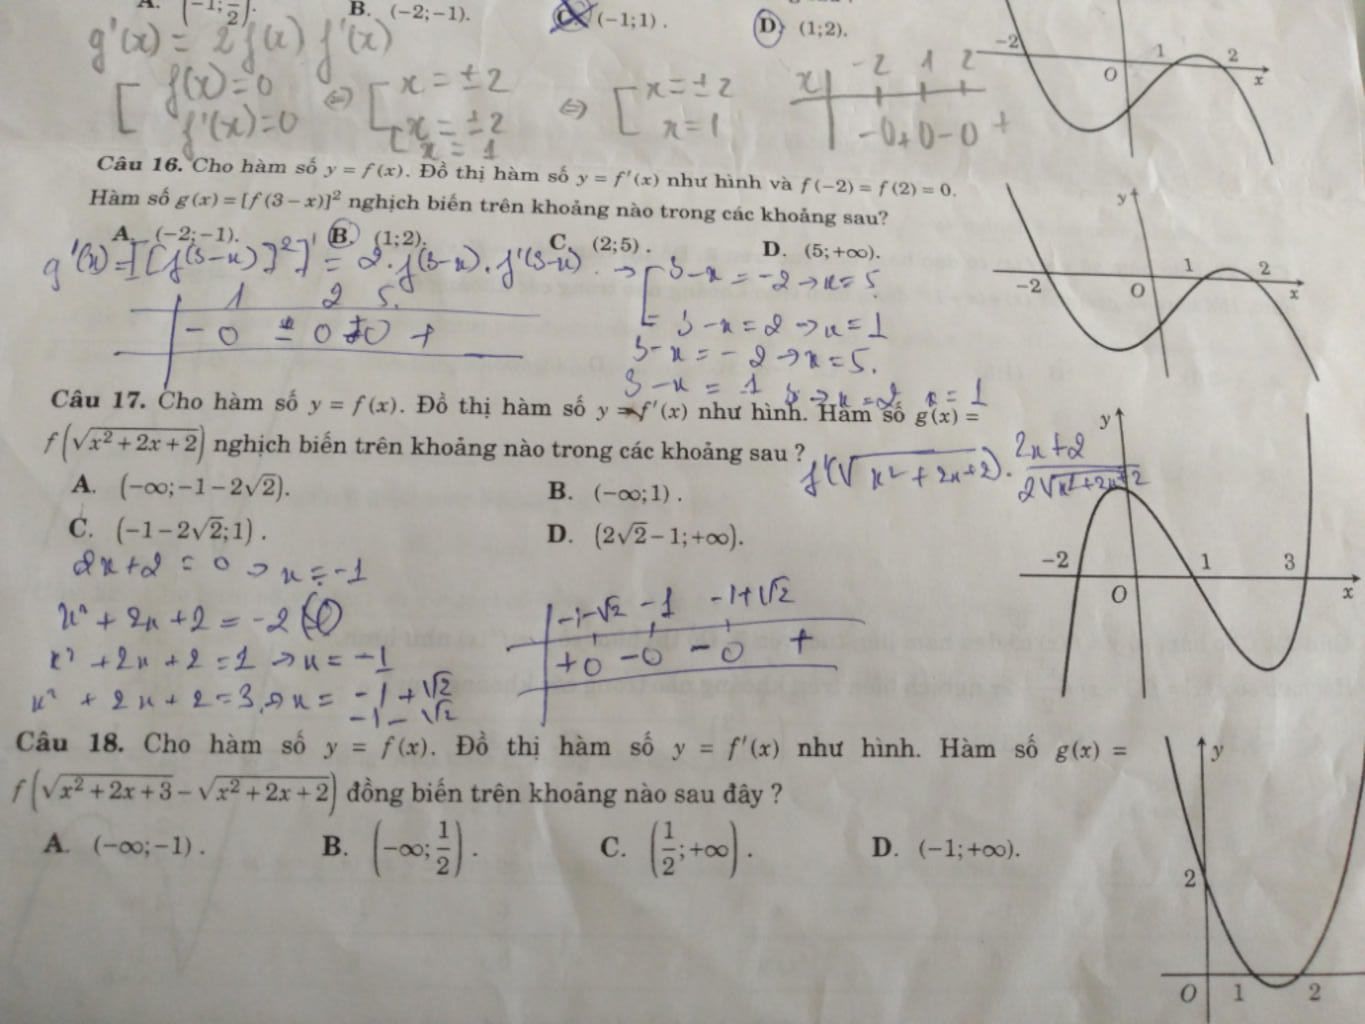 A. (-1; 1/2). B. (−2;−1). C. (−1;1). D. (1;2).
g'(x) = 2f(x) f'(x)
[ f(x)=0 f'(x)=0 ⇔ [ x = ±2 [ x = ±2 x = 1 ⇔ [ x = ±2 x = 1
x -2 1 2
-0+0-0+
-2 O 1 2 x
Câu 16. Cho hàm số y = f(x). Đồ thị hàm số y = f'(x) như hình và f(−2) = f(2) = 0.
Hàm số g(x) = [f(3−x)]² nghịch biến trên khoảng nào trong các khoảng sau?
A. (−2;−1). B. (1;2). C. (2;5). D. (5;+∞).
g'(x) = [[f(3-x)]²]' = 2.f(3-x).f'(3-x) → [ 3-x = -2 → x = 5
3-x = 2 → x = 1
3-x = -2 → x = 5.
3-x = 1 → x = 2 x = 1
1 2 5
y -2 O 1 2 x
Câu 17. Cho hàm số y = f(x). Đồ thị hàm số y = f'(x) như hình. Hàm số g(x) =
f(√(x²+2x+2)) nghịch biến trên khoảng nào trong các khoảng sau ?
f'(√(x²+2x+2)). (2x+2)/(2√(x²+2x+2))
A. (−∞;−1−2√2). B. (−∞;1).
C. (−1−2√2;1). D. (2√2−1;+∞).
2x+2 = 0 → x = -1
x² + 2x + 2 = -2
x² + 2x + 2 = 1 → x = -1
x² + 2x + 2 = 3 → x = -1+√2
-1-√2
-1-√2 -1 -1+√2
+0 -0 -0 +
y -2 O 1 3 x
Câu 18. Cho hàm số y = f(x). Đồ thị hàm số y = f'(x) như hình. Hàm số g(x) =
f(√(x²+2x+3)−√(x²+2x+2)) đồng biến trên khoảng nào sau đây ?
A. (−∞;−1). B. (−∞; 1/2). C. (1/2; +∞). D. (−1;+∞).
y 2 O 1 2